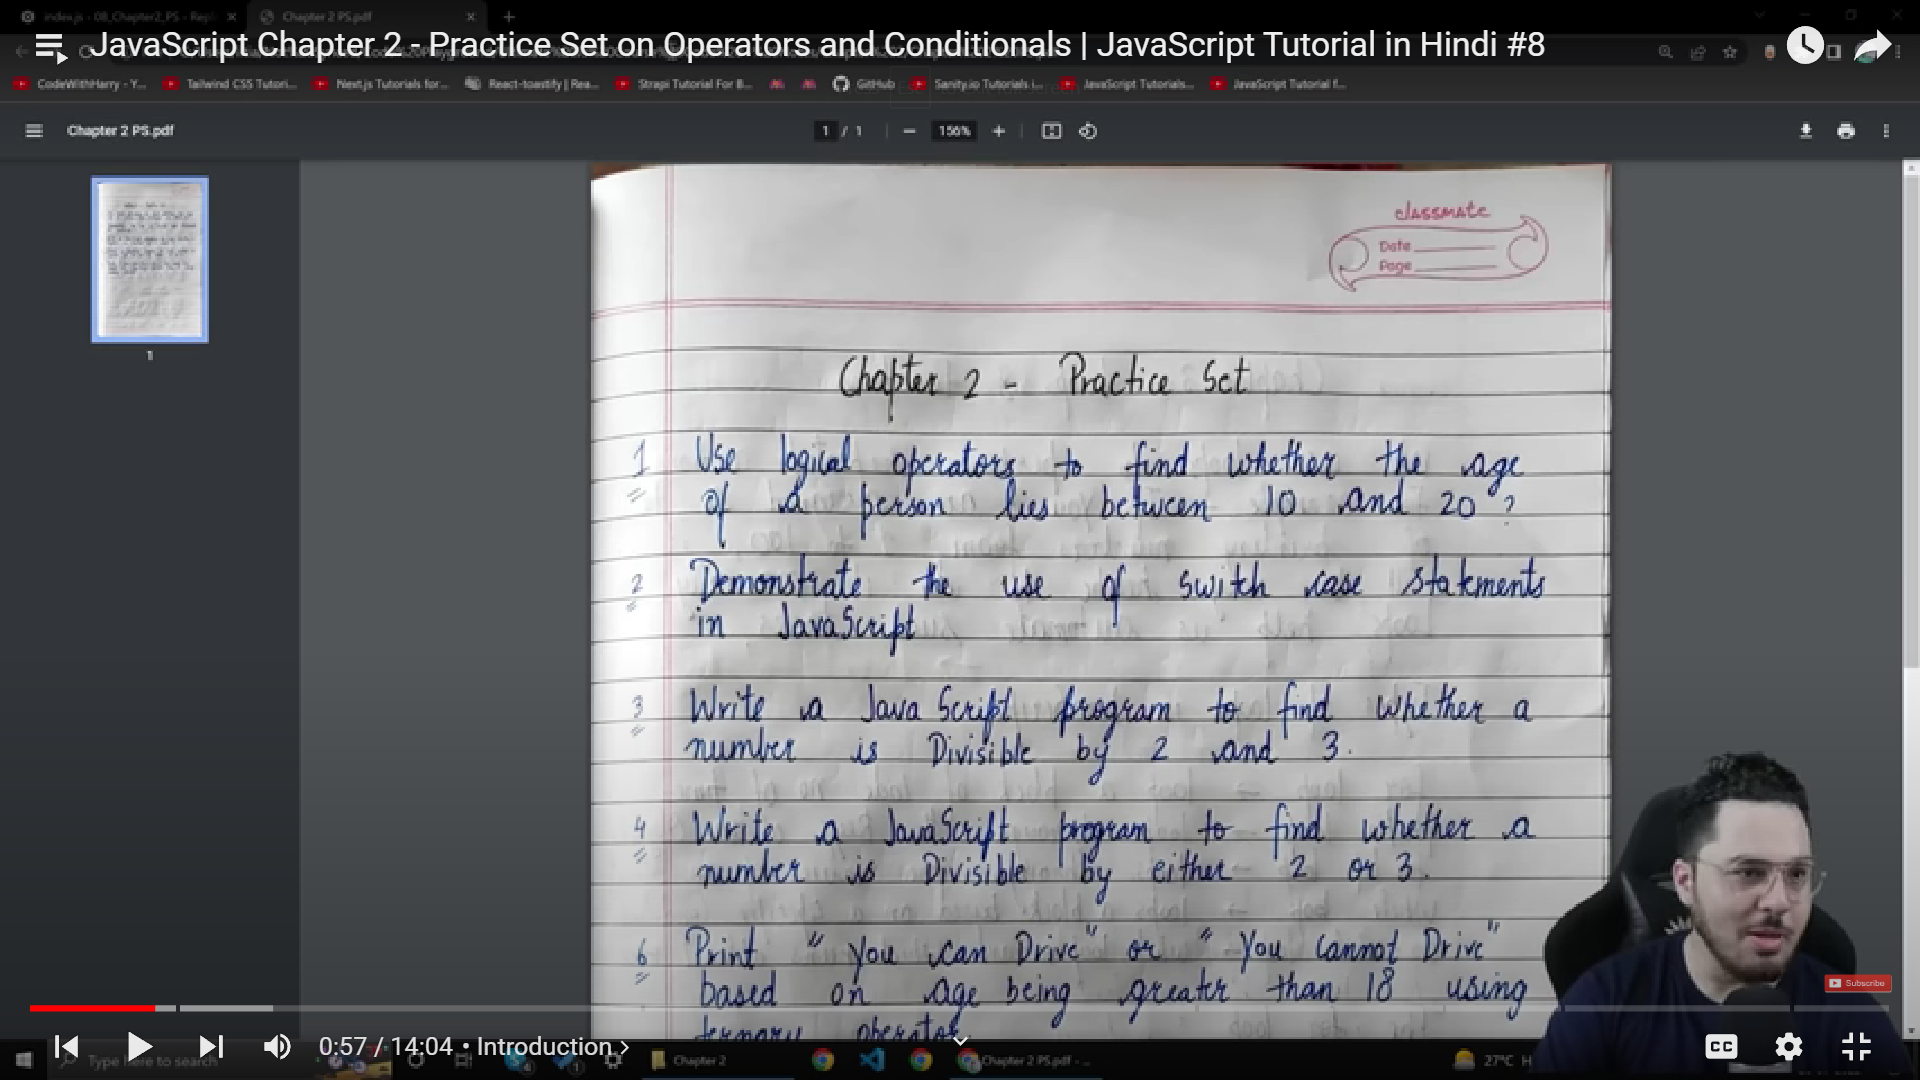 index.js - 08_Chapter2_PS - Repl
Chapter 2 PS.pdf
JavaScript Chapter 2 - Practice Set on Operators and Conditionals | JavaScript Tutorial in Hindi #8
CodeWithHarry - Y...
Tailwind CSS Tutori...
Next.js Tutorials for...
React-toastify | Rea...
Strapi Tutorial For B...
GitHub
Sanity.io Tutorials i...
JavaScript Tutorials...
JavaScript Tutorial f...
Chapter 2 PS.pdf
1 / 1
156%
1
classmate
Date
Page
Chapter 2 - Practice Set
1 Use logical operators to find whether the age
of a person lies between 10 and 20 ?
2 Demonstrate the use of switch case statements
in JavaScript
3 Write a Java Script program to find whether a
number is Divisible by 2 and 3.
4 Write a JavaScript program to find whether a
number is Divisible by either 2 or 3.
6 Print " You can Drive" or " You cannot Drive"
based on age being greater than 18 using
ternary operator.
Subscribe
0:57 / 14:04 • Introduction
CC
Type here to search
Chapter 2
Chapter 2 PS.pdf - ...
27°C H